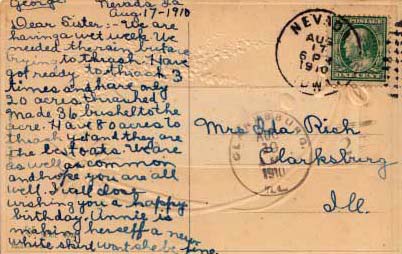 Nevada Ia
Aug-17-1910
Dear Sister:- We are
having a wet week. We
needed the rain but are
trying to thrash. Have
got ready to thrash 3
times and have only
20 acres thrashed
made 36 bushel to the
acre. Have 80 acres to
thrash yet and they are
the best oats. We are
as well as common
and hope you are all
well. I will close
wishing you a happy
birthday. Annie is
making herself a new
white skirt wont she be fine
NEVADA
AUG
17
6 P
1910
IOWA
ONE CENT
Mrs Ida Rich
Clarksburg
Ill.
CLARKSBURG
AUG
1910
ILL.